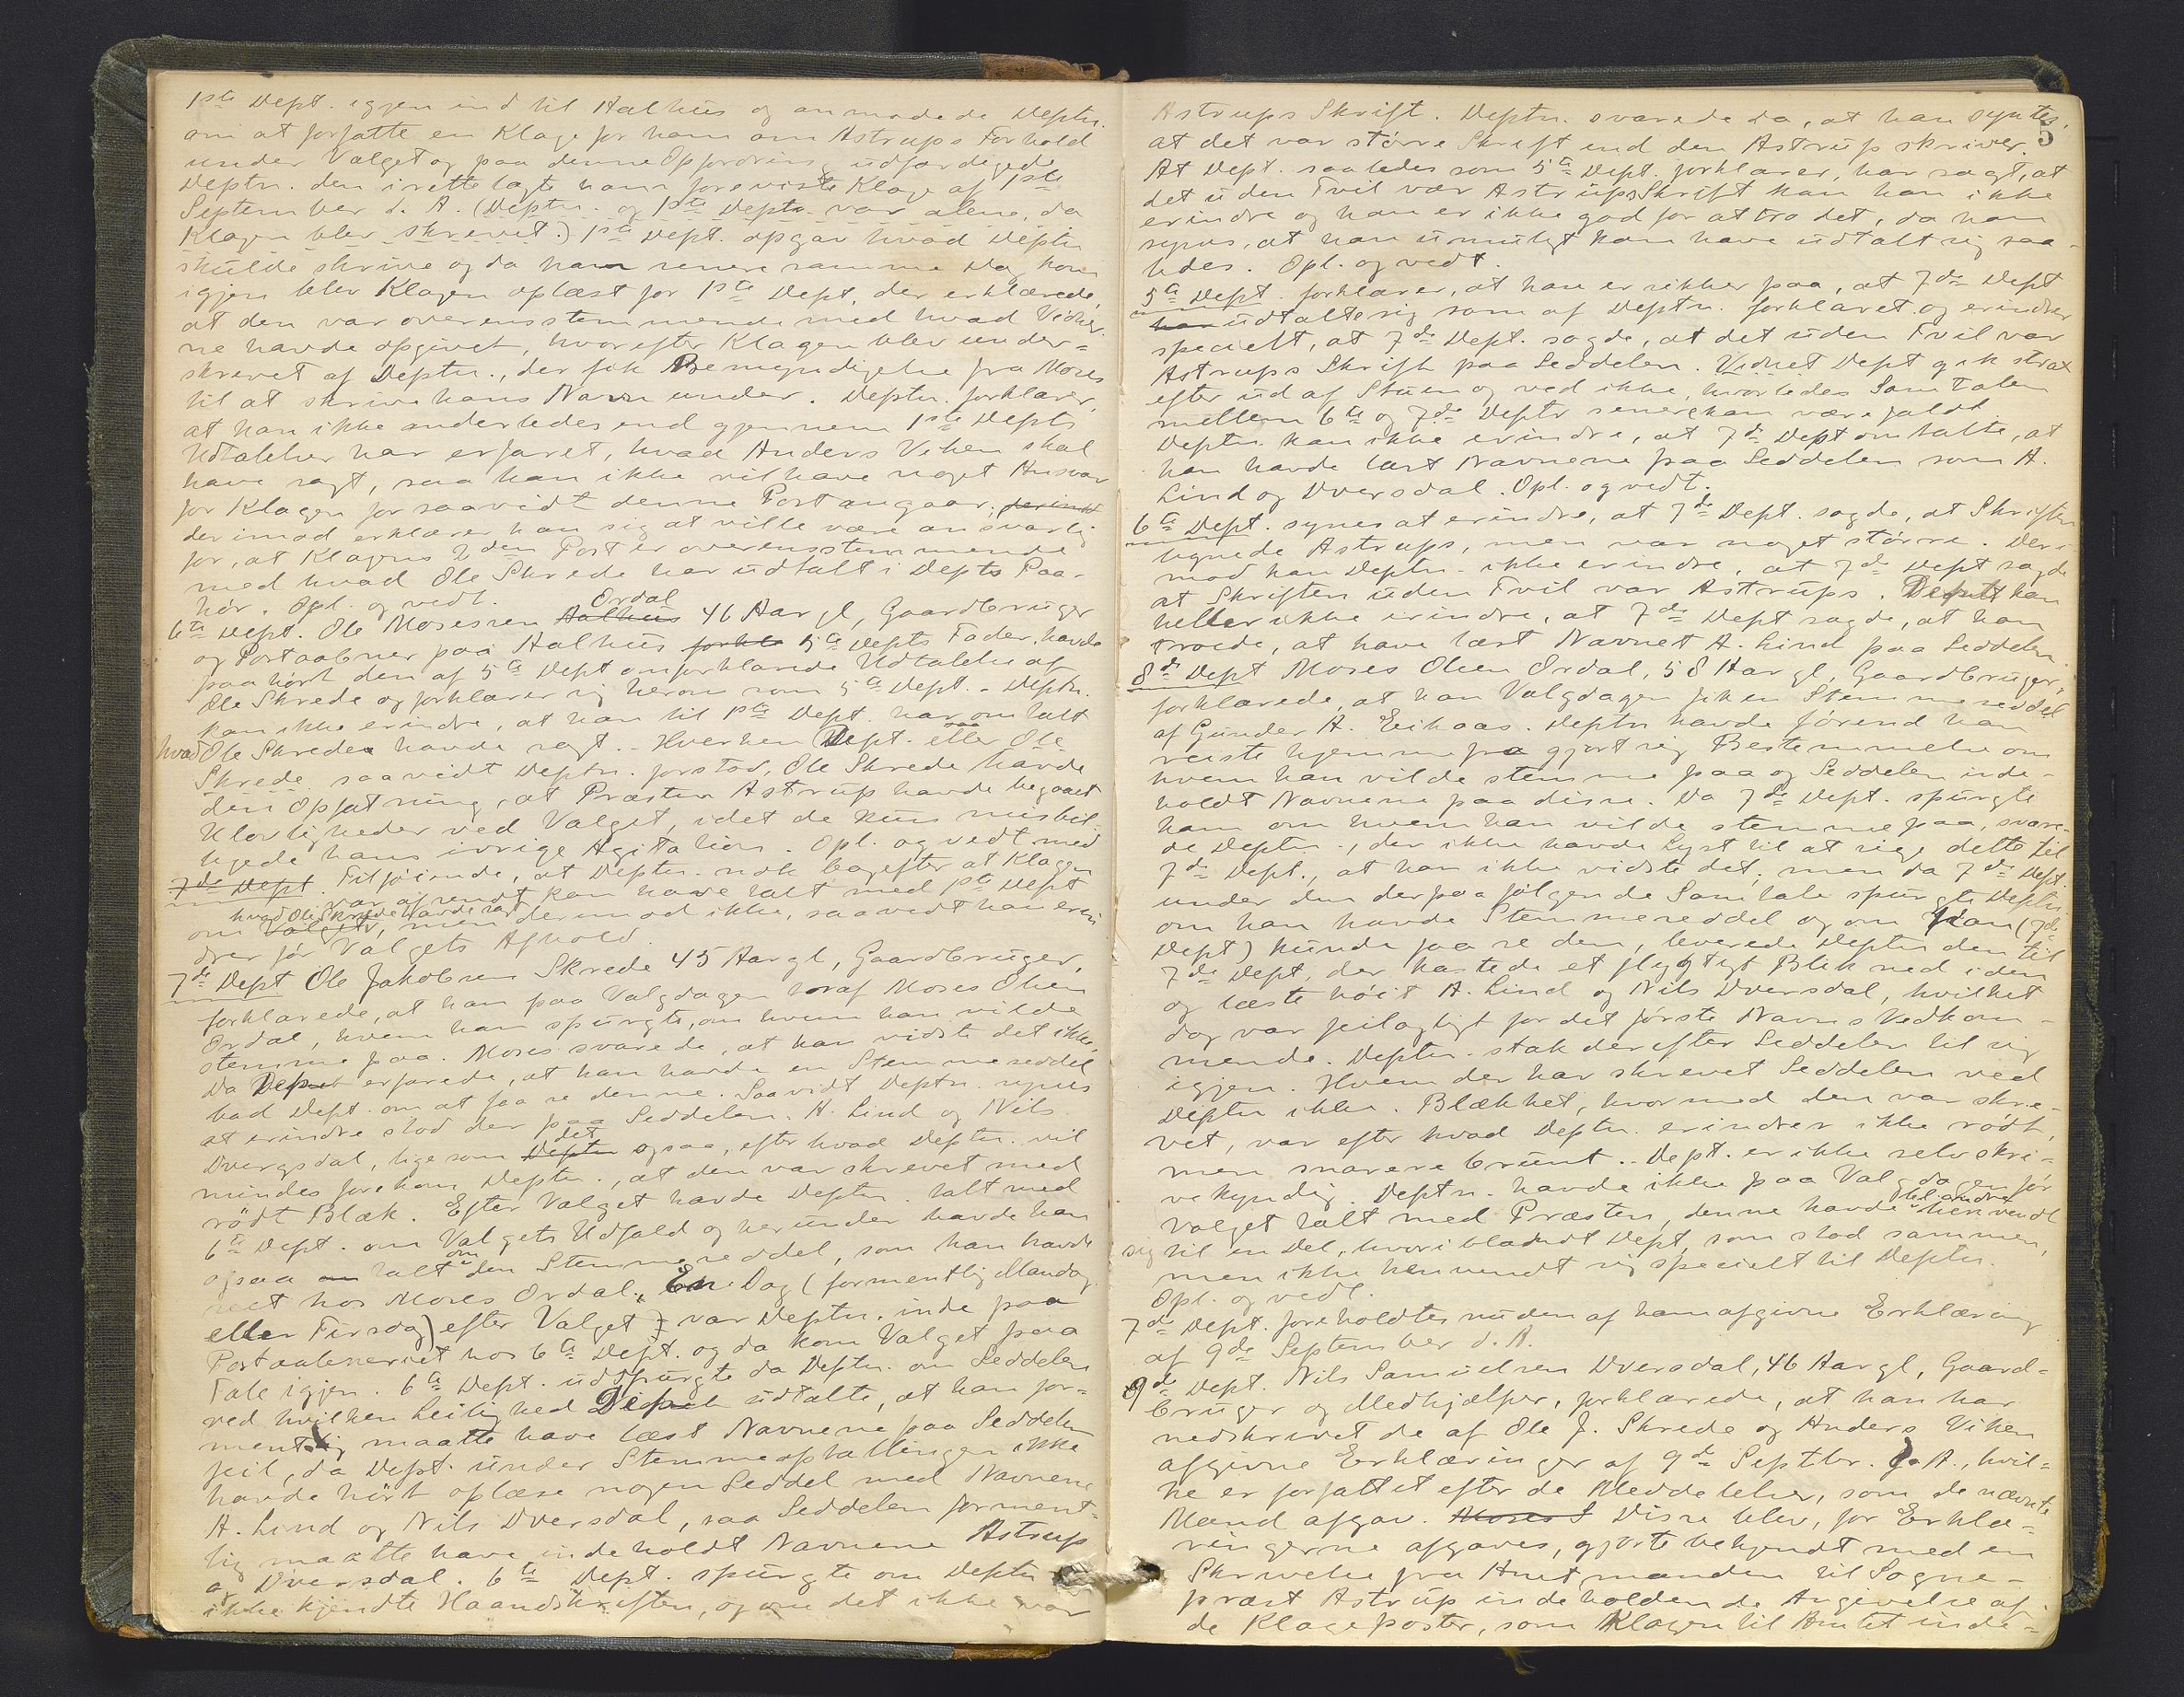 1ste Dept. igjen ind til Aalhus og anmodede Deptn.
om at forfatte en Klage for ham om Astrups Forhold
under Valget og paa denne Opfordring udfærdigede
Deptn. den irettelagte ham foreviste Klage af 1ste
September d. A. (Deptn. og 1ste Deptn. var alene, da
Klagen blev skrevet.) 1ste Dept. opgav hvad Deptn
skulde skrive og da han senere samme Dag kom
igjen blev Klagen oplæst for 1ste Dept. der erklærede,
at den var overensstemmende med hvad Vidner-
ne havde opgivet, hvorefter Klagen blev under=
skrevet af Deptn., der fik Bemyndigelse fra Moses
til at skrive hans Navn under. Deptn. forklarer,
at han ikke anderledes end gjennem 1ste Depts
Udtalelser har erfaret, hvad Anders Viken skal
have sagt, saa han ikke vil have noget Ansvar
for Klagen forsaavidt denne Post angaar, derimod
derimod erklærer han sig at ville være ansvarlig
for, at Klagens 2den Post er overensstemmende
med hvad Ole Skrede har udtalt i Depts Paa-
hør. Opl. og vedt.
6te Dept. Ole Mosessen Aalhus Ordal 46 Aar gl, Gaardbruger
og Postaabner paa Aalhus forkla 5te Depts Fader, havde
paahørt den af 5te Dept omforklarede Udtalelse af
Ole Skrede og forklarer sig herom som 5te Dept. - Deptn.
kan ikke erindre, at han til 1ste Dept. har omtalt
hvad Ole Skrede havde sagt. - Hverken Dept. eller Ole
Skrede saavidt Deptn. forstod, Ole Skrede havde
den Opfatning, at Præsten Astrup havde begaaet
Ulovligheder ved Valget, idet de kun misbil-
ligede hans ivrige Agitation. Opl. og vedt med
7de Dept. Tilføiende, at Deptn. nok bagefter at Klagen
var afsendt kan have talt med 1ste Dept
om Valget, hvad Ole Skrede havde sagt men derimod ikke, saavidt han erin
drer før Valgets Afhold.
7de Dept Ole Jakobsen Skrede 45 Aar gl, Gaardbruger,
forklarede, at han paa Valgdagen traf Moses Olsen
Ordal, hvem han spurgte, om hvem han vilde
stemme paa. Moses svarede, at han vidste det ikke,
Da Deptn erfarede, at han havde en Stemmeseddel
bad Dept. om at faa se denne. Saavidt Deptn synes
at erindre stod der paa Seddelen. A. Lind og Nils
Dvergsdal, ligesom Deptn det ogsaa, efter hvad Deptn. vil
mindes forekom Deptn., at den var skrevet med
rødt Blæk. Efter Valget havde Deptn. talt med
6te Dept. om Valgets Udfald og herunder havde han
ogsaa om talt om den Stemmeseddel, som han havde
seet hos Moses Ordal, En Dag (formentlig Mandag
eller Tirsdag) efter Valget var Deptn. inde paa
Postaabneriet hos 6te Dept. og da kom Valget paa
Tale igjen. 6te Dept. udspurgte da Deptn. om Seddelen
ved hvilken Leilighed Deptn udtalte, at han for=
mentlig maatte have læst Navnene paa Seddelen
feil, da Dept. under Stemmeoptællingen ikke
havde hørt oplæse nogen Seddel med Navnene
A. Lind og Nils Dversdal, saa Seddelen forment-
lig maatte have indeholdt Navnene Astrup
og Dversdal. 6te Dept. spurgte om Deptn
ikke kjendte Haandskriften, og om det ikke var
5
Astrups Skrift. Deptn. svarede da, at han syntes,
at det var større Skrift end den Astrup skriver.
At Dept. saaledes som 5te Dept. forklarer, har sagt, at
det uden Tvil var Astrups Skrift kan han ikke
erindre og han er ikke god for at tro det, da han
synes, at han umuligt kan have udtalt sig saa-
ledes. Opl. og vedt.
5te Dept. forklarer, at han er sikker paa, at 7de Dept
har udtalte sig som af Deptn. forklaret og erindrer
specielt, at 7de Dept. sagde, at det uden Tvil var
Astrups Skrift paa Seddelen. Vidnet Dept gik strax
efter ud af Stuen og ved ikke, hvorledes Samtalen
mellem 6te og 7de Deptr senere kan være faldt.
Deptn. kan ikke erindre, at 7de Dept omtalte, at
han havde læst Navnene paa Seddelen som A.
Lind og Dversdal. Opl. og vedt.
6te Dept. synes at erindre, at 7de Dept. sagde, at Skriften
lignede Astrups, men var noget større. Der-
mod kan Deptn. ikke erindre, at 7de Dept sagde
at Skriften uden Tvil var Astrups. Deptn kan
heller ikke erindre, at 7de Dept sagde, at han
troede, at have læst Navnet A. Lind paa Seddelen.
8de Dept Moses Olsen Ordal, 58 Aar gl, Gaardbruger,
forklarede, at han Valgdagen fik en Stemmeseddel
af Gunder A. Eikaas. Deptn havde førend han
reiste hjemmefra gjort sig Bestemmelse om
hvem han vilde stemme paa og Seddelen inde-
holdt Navnene paa disse. Da 7de Dept. spurgte
ham om hvem han vilde stemme paa, svare-
de Deptn., der ikke havde Lyst til at sige dette til
7de Dept., at han ikke vidste det, men da 7de Dept.
under den derpaa følgende Samtale spurgte Deptn
om han havde Stemmeseddel og om han (7de
Dept) kunde faa se den, leverede Deptn den til
7de Dept, der kastede et flygtigt Blik ned i den
og læste høit A. Lind og Nils Dversdal, hvilket
dog var feilagtigt for det første Navns Vedkom-
mende. Deptn. stak derefter Seddelen til sig
igjen. Hvem der har skrevet Seddelen ved
Deptn ikke. Blækket, hvormed den var skre-
vet, var efter hvad Deptn. erindrer ikke rødt,
men snarere brunt. - Dept. er ikke selv skri=
vekyndig. Deptn. havde ikke paa Valgdagen før
Valget talt med Præsten, denne havde til andre henvendt
sig til en Del, hvoriblandt Dept, som stod sammen,
men ikke henvendt sig specielt til Deptn.
Opl. og vedt.
7de Dept. foreholdtes nu den af ham afgivne Erklæring
af 9de September d. A.
9de Dept. Nils Samuelsen Dversdal, 46 Aar gl, Gaard=
bruger og Medhjælper, forklarede, at han har
nedskrevet de af Ole J. Skrede og Anders Viken
afgivne Erklæringer af 9de Septbr. d. A., hvil=
ke er forfattet efter de Meddelelser, som de nævnte
Mænd afgav. Moses S Disse blev, før Erklæ=
ringerne afgaves, gjorte bekjendt med en
Skrivelse fra Amtmanden til Sogne-
præst Astrup indeholdende Angivelse af
de Klageposter, som Klagen til Amtet inde=